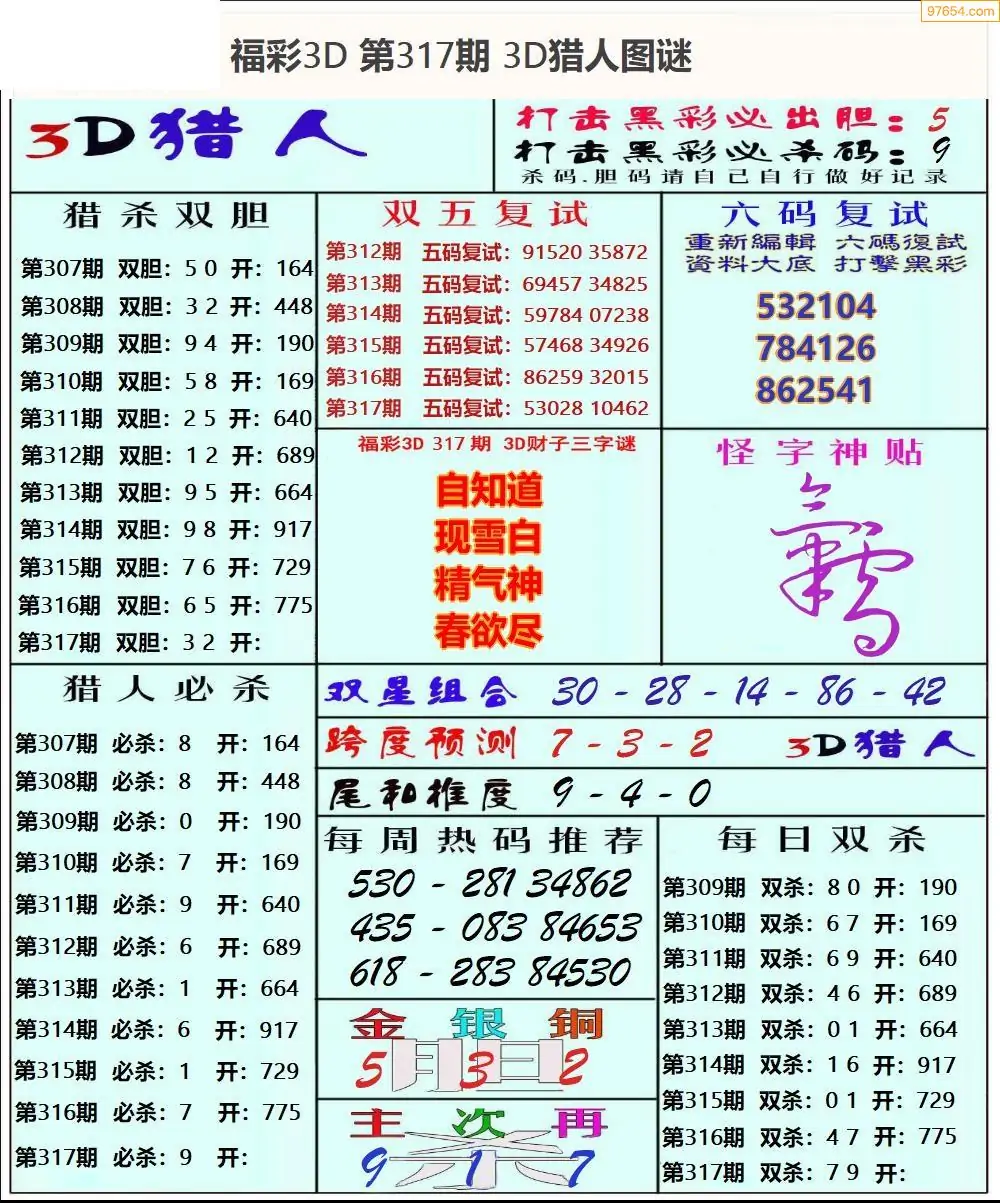 97654.com
福彩3D 第317期 3D猎人图谜
3D猎人
打击黑彩必出胆：5
打击黑彩必杀码：9
杀码.胆码请自己自行做好记录
猎杀双胆
第307期 双胆：5 0 开：164
第308期 双胆：3 2 开：448
第309期 双胆：9 4 开：190
第310期 双胆：5 8 开：169
第311期 双胆：2 5 开：640
第312期 双胆：1 2 开：689
第313期 双胆：9 5 开：664
第314期 双胆：9 8 开：917
第315期 双胆：7 6 开：729
第316期 双胆：6 5 开：775
第317期 双胆：3 2 开：
双五复试
第312期 五码复试：91520 35872
第313期 五码复试：69457 34825
第314期 五码复试：59784 07238
第315期 五码复试：57468 34926
第316期 五码复试：86259 32015
第317期 五码复试：53028 10462
六码复试
重新編輯 六碼復試
資料大底 打擊黑彩
532104
784126
862541
福彩3D 317期 3D财子三字谜
自知道
现雪白
精气神
春欲尽
怪字神贴
猎人必杀
第307期 必杀：8 开：164
第308期 必杀：8 开：448
第309期 必杀：0 开：190
第310期 必杀：7 开：169
第311期 必杀：9 开：640
第312期 必杀：6 开：689
第313期 必杀：1 开：664
第314期 必杀：6 开：917
第315期 必杀：1 开：729
第316期 必杀：7 开：775
第317期 必杀：9 开：
双星组合 30 - 28 - 14 - 86 - 42
跨度预测 7 - 3 - 2 3D猎人
尾和推度 9 - 4 - 0
每周热码推荐
530 - 281 34862
435 - 083 84653
618 - 283 84530
金银铜
5月3日2
主次再
9杀1 7
每日双杀
第309期 双杀：8 0 开：190
第310期 双杀：6 7 开：169
第311期 双杀：6 9 开：640
第312期 双杀：4 6 开：689
第313期 双杀：0 1 开：664
第314期 双杀：1 6 开：917
第315期 双杀：0 1 开：729
第316期 双杀：4 7 开：775
第317期 双杀：7 9 开：